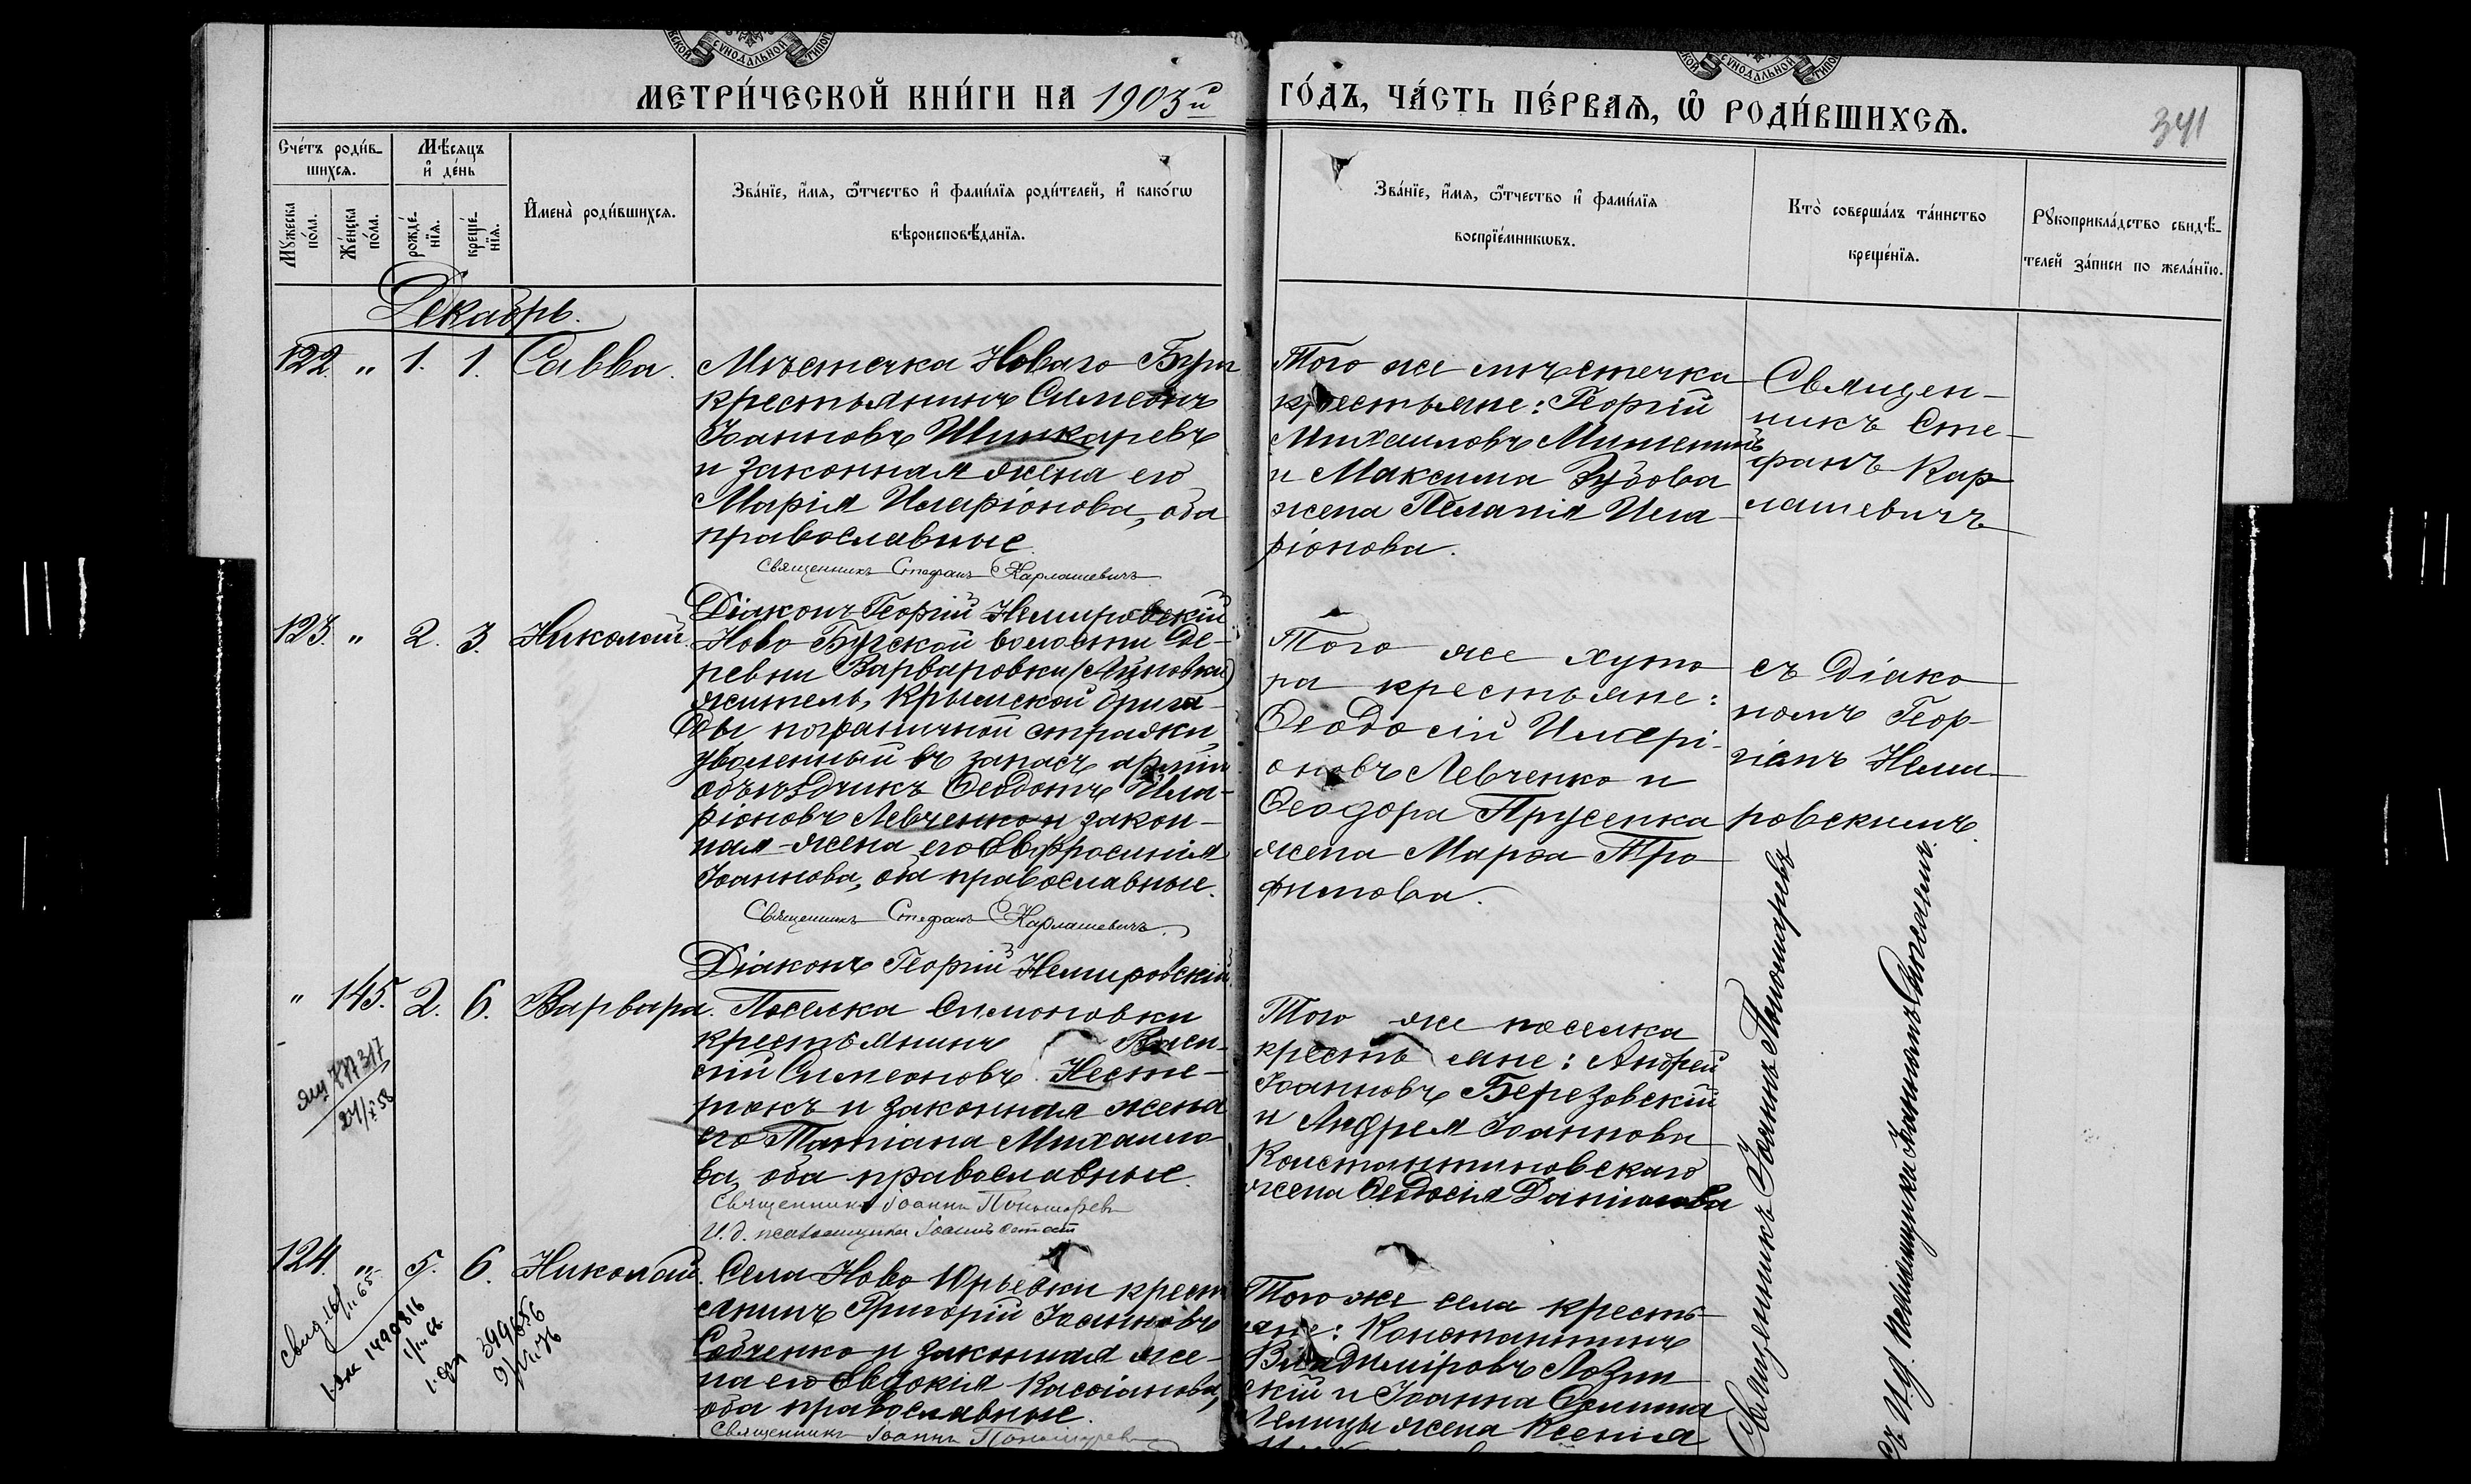 МЕТРИ́ЧЕСКОЙ КНИ́ГИ НА 1903й ГО́ДЪ, ЧА́СТЬ ПЕ́РВАѦ, Ѡ РОДИ́ВШИХСѦ.
341
Сче́тъ роди́в-
шихсѧ.
Мѣ́сяцъ
и҆ де́нь
Мꙋжеска по́ла.
Же́нска по́ла.
рожде́-
нїѧ.
креще́-
нїѧ.
И҆мена̀ роди́вшихсѧ.
Зва́нїе, и҆́мѧ, ѻ҆́тчество и҆ фами́лїѧ роди́телей, и҆ како́гѡ
вѣроисповѣ́данїѧ.
Зва́нїе, и҆́мѧ, ѻ҆́тчество и҆ фами́лїѧ
воспрїе́мникѡвъ.
Кто̀ соверша́лъ та́инство
креще́нїѧ.
Рꙋкоприкла́дство свидѣ́-
телей за́писи по жела́нїю.
Декабрь.
122. " 1. 1. Савва.
Мѣстечка Новаго Буга
крестьянинъ Симеонъ
Іоанновъ Шинкаревъ
и законная жена его
Марія Иларіонова, оба
православные.
Священникъ Стефанъ Карлашевичъ
Діаконъ Георгій Немировскій
Того же мѣстечка
крестьяне: Георгій
Михаиловъ
и Максима Зубова
жена Пелагія Ила-
ріонова.
Священ-
никъ Сте-
фанъ Кар-
лашевичъ
123. " 2. 3. Николай.
Ново-Бугской волости де-
ревни Варваровки
житель, Крымской брига-
ды пограничной стражи
уволенный въ запасъ арміи
объѣздчикъ Ѳеодотъ Ила-
ріоновъ Левченко и закон-
ная жена его Евфросинія
Іоаннова, оба православные.
Священникъ Стефанъ Карлашевичъ.
Діаконъ Георгій Немировскій.
Того же хуто
ра крестьяне:
Ѳеодосій Иларі-
оновъ Левченко и
Ѳеодора Прусенка
жена Марѳа Тро
фимова.
съ Діако
номъ Геор-
гіемъ Неми-
ровскимъ.
" 145. 2. 6. Варвара.
Поселка Симоновки
крестьянинъ Васи-
лій Симеоновъ Несте-
ракъ и законная жена
его Татіана Михаило-
ва, оба православные.
Священникъ Іоаннъ Пономаревъ
И. д. псаломщика Іоаннъ
Того же поселка
крестьяне: Андрей
Іоанновъ Березовскій
и Андрея Іоаннова
Константиновскаго
жена Ѳеодосія Даніилова
Священникъ Іоаннъ Пономаревъ
съ И. д. псаломщика Іоанномъ
124. " 5. 6. Николай.
Села Ново Юрьевки кресть
янинъ Григорій Іоанновъ
Собченко и законная же-
на его Евдокія Кассіанова,
оба православные.
Священникъ Іоаннъ Пономаревъ
Того же села кресть-
яне: Константинъ
Владиміровъ Лозин
скій и Іоанна
жена Ксенія